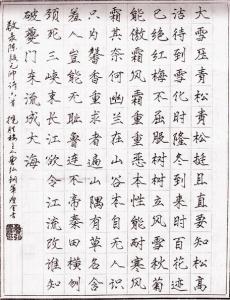 大雪压青松青松挺且直要知松高
洁待到雪化时隆冬到来时百花迹
已绝红梅不屈服树树立风雪秋菊
能傲霜风霜重重恶本性能耐寒风
霜其奈何幽兰在山谷本自无人识
只为馨香重求者遍山隅有草名含
羞人岂能无耻鲁连不帝秦田横刎
颈死三峡束长江欲令江流改谁知
破夔门东流成大海
敬录陈毅元帅诗六首